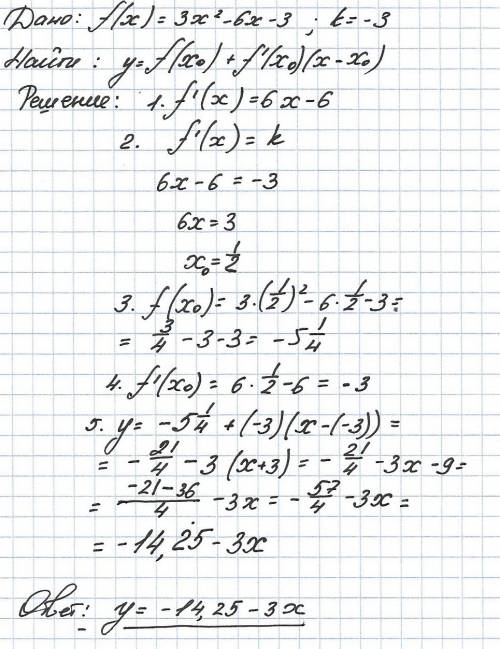 Дано: f(x) = 3x² - 6x - 3 ; k = -3
Найти: y = f(x₀) + f'(x₀)(x - x₀)
Решение: 1. f'(x) = 6x - 6
2. f'(x) = k
6x - 6 = -3
6x = 3
x₀ = 1/2
3. f(x₀) = 3·(1/2)² - 6·1/2 - 3 =
= 3/4 - 3 - 3 = -5 1/4
4. f'(x₀) = 6·1/2 - 6 = -3
5. y = -5 1/4 + (-3)(x - (-3)) =
= -21/4 - 3(x+3) = -21/4 - 3x - 9 =
= (-21-36)/4 - 3x = -57/4 - 3x =
= -14,25 - 3x
Ответ: y = -14,25 - 3x